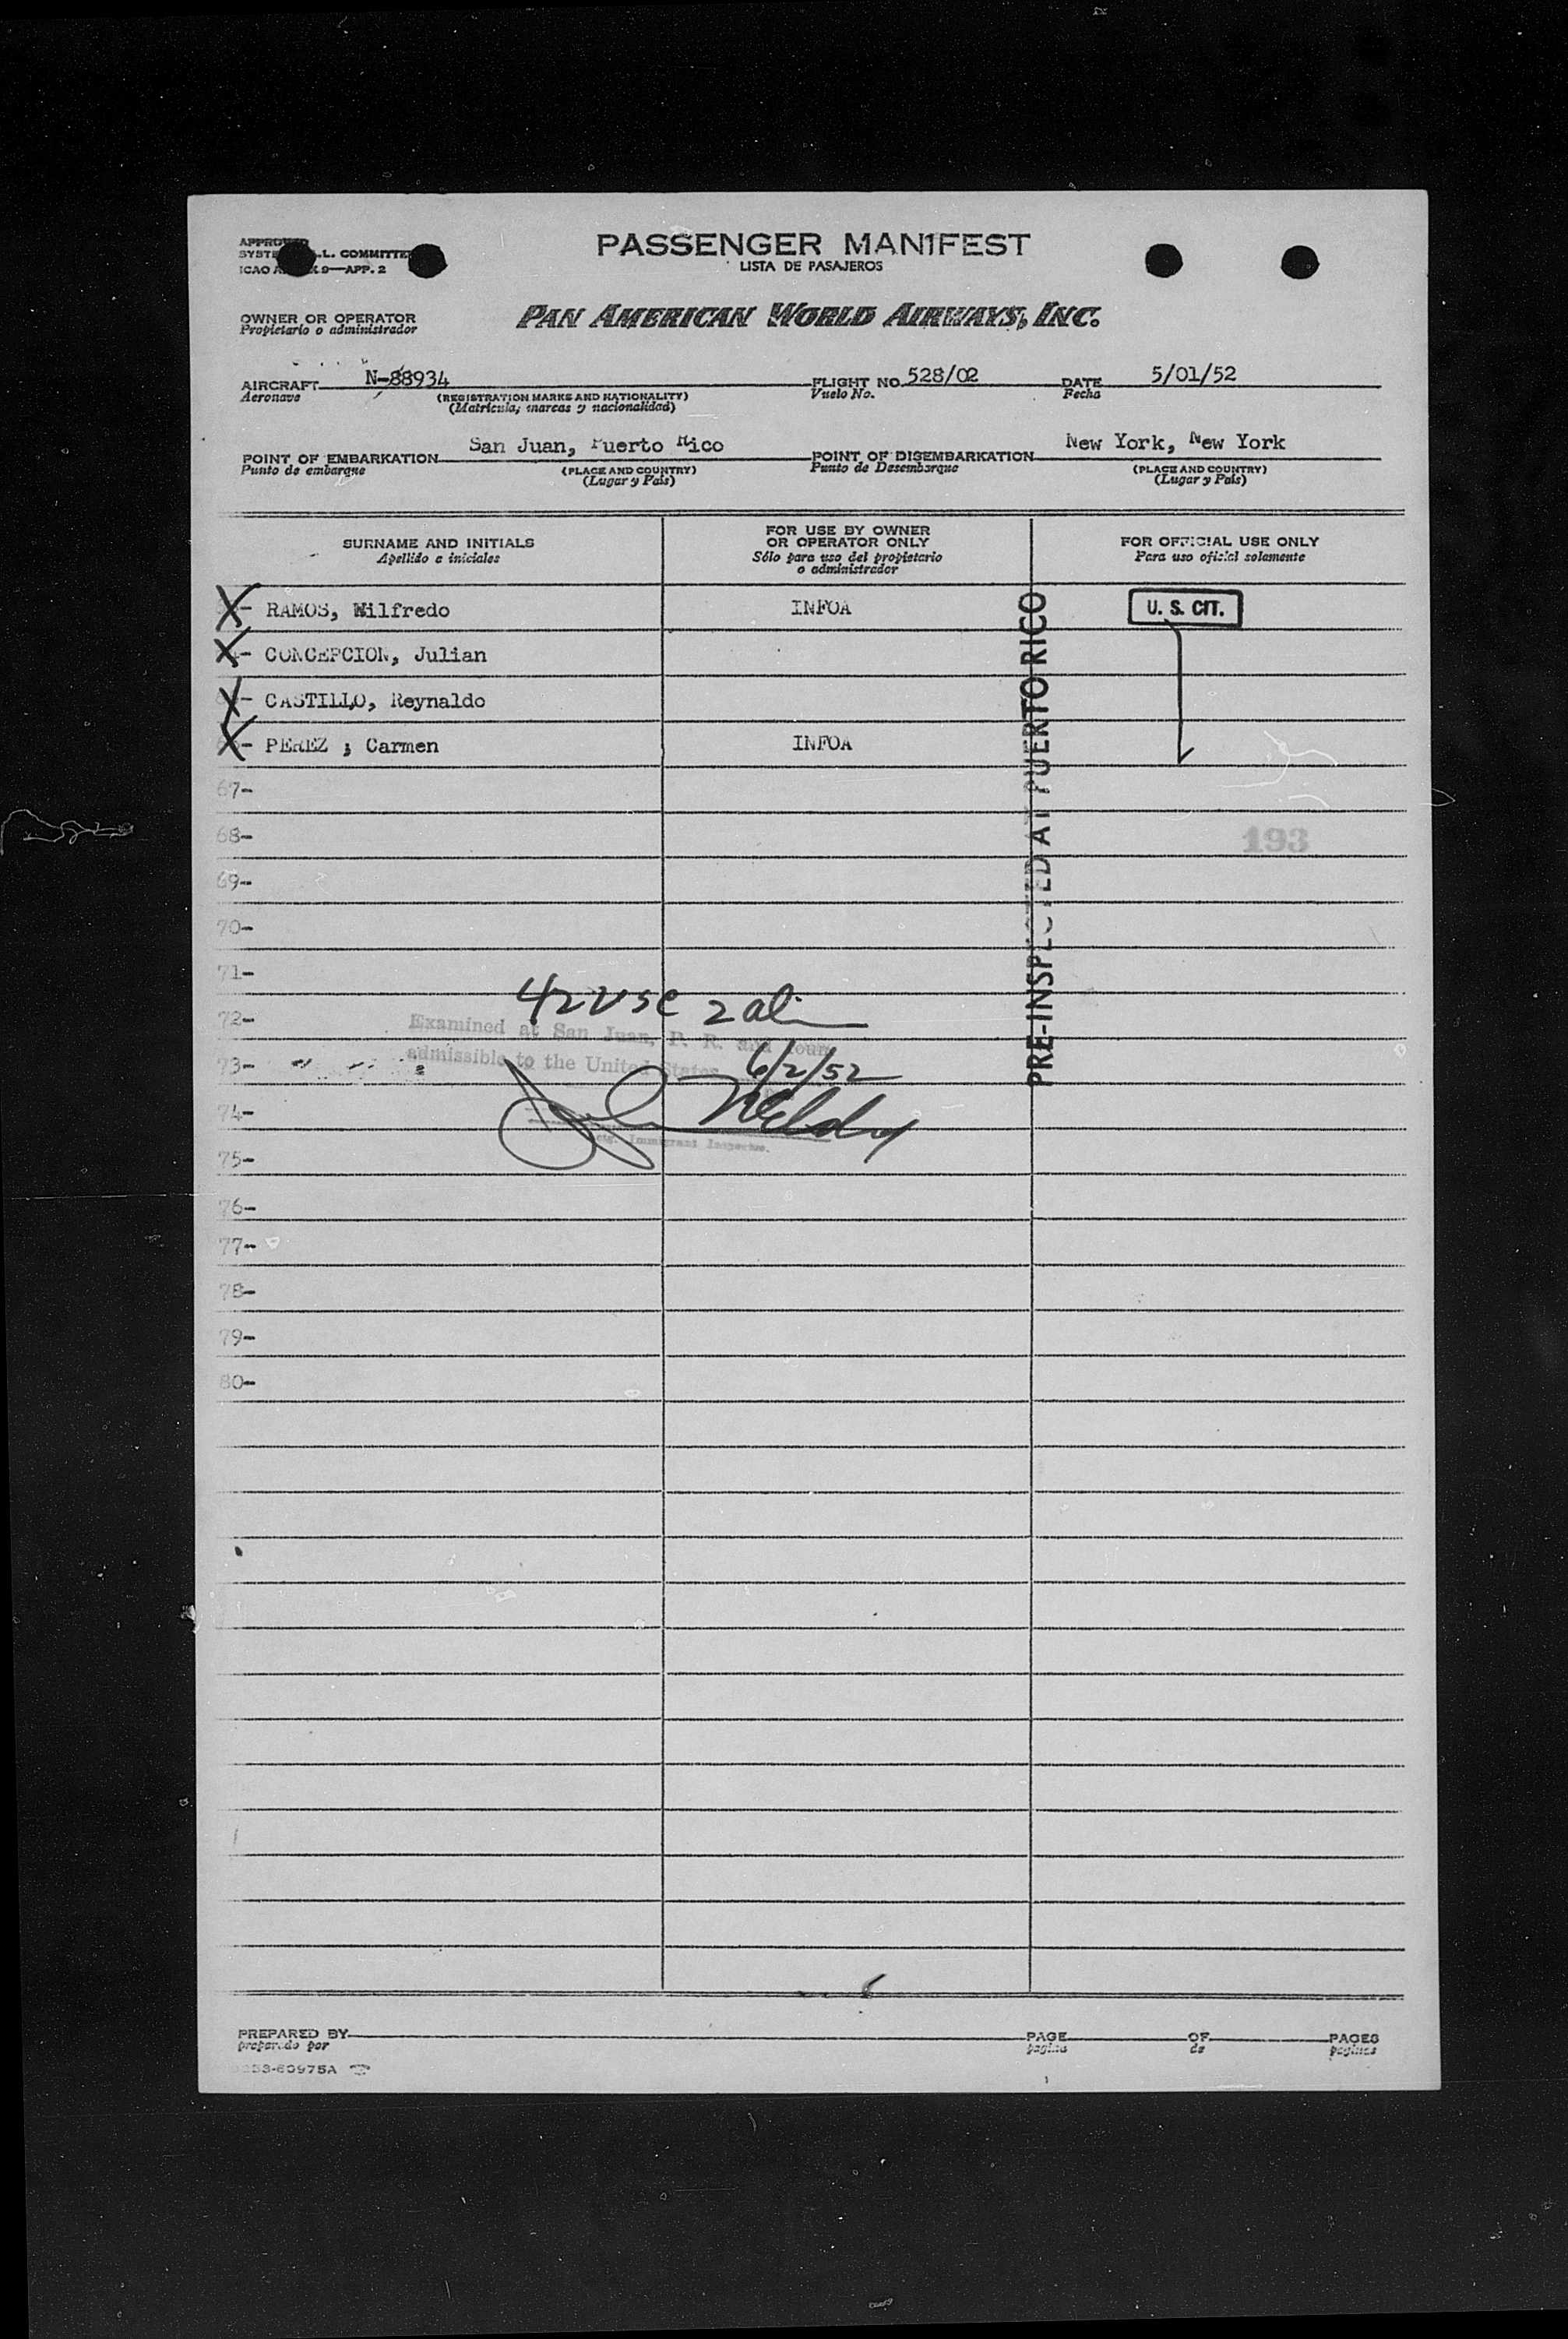 PASSENGER MANIFEST
LISTA DE PASAJEROS
L. COMMITTEE
ICAO 9—APP. 2
OWNER OR OPERATOR
Propietario o administrador
PAN AMERICAN WORLD AIRWAYS, INC.
AIRCRAFT N-88934 FLIGHT NO. 528/02 DATE 5/01/52
Aeronave (REGISTRATION MARKS AND NATIONALITY) Vuelo No. Fecha
(Matrícula, marcas y nacionalidad)
POINT OF EMBARKATION San Juan, Puerto Rico POINT OF DISEMBARKATION New York, New York
Punto de embarque (PLACE AND COUNTRY) Punto de Desembarque (PLACE AND COUNTRY)
(Lugar y País) (Lugar y País)
SURNAME AND INITIALS
Apellido e iniciales
FOR USE BY OWNER
OR OPERATOR ONLY
Sólo para uso del propietario
o administrador
FOR OFFICIAL USE ONLY
Para uso oficial solamente
RAMOS, Wilfredo INFOA U. S. CIT.
CONCEPCION, Julian
CASTILLO, Reynaldo
PEREZ ; Carmen INFOA
PRE-INSPECTED AT PUERTO RICO
67-
68- 193
69-
70-
71-
42 USC 2 ali
72-
Examined at San Juan, P. R. and
73-
admissible to the United States
6/2/52
74-
Immigrant Inspector.
75-
76-
77-
78-
79-
80-
PREPARED BY PAGE OF PAGES
preparado por página de páginas
53-60975A